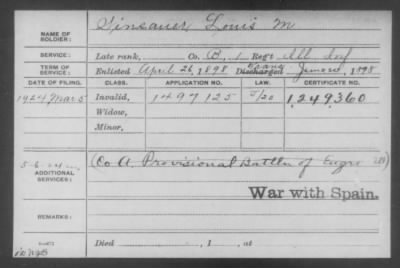 NAME OF SOLDIER: Sinsauer, Louis M
SERVICE: Late rank, Co. B, 1 Reg't Ill Inf
TERM OF SERVICE: Enlisted April 26, 1898 Discharged 1898
DATE OF FILING. CLASS. APPLICATION NO. LAW. CERTIFICATE NO.
1924 Mar 5 Invalid, 1497125 5/20 1,249,360
Widow,
Minor,
ADDITIONAL SERVICES: (Co A. Provisional Battln of Engrs
War with Spain.
REMARKS:
Died , 1 , at